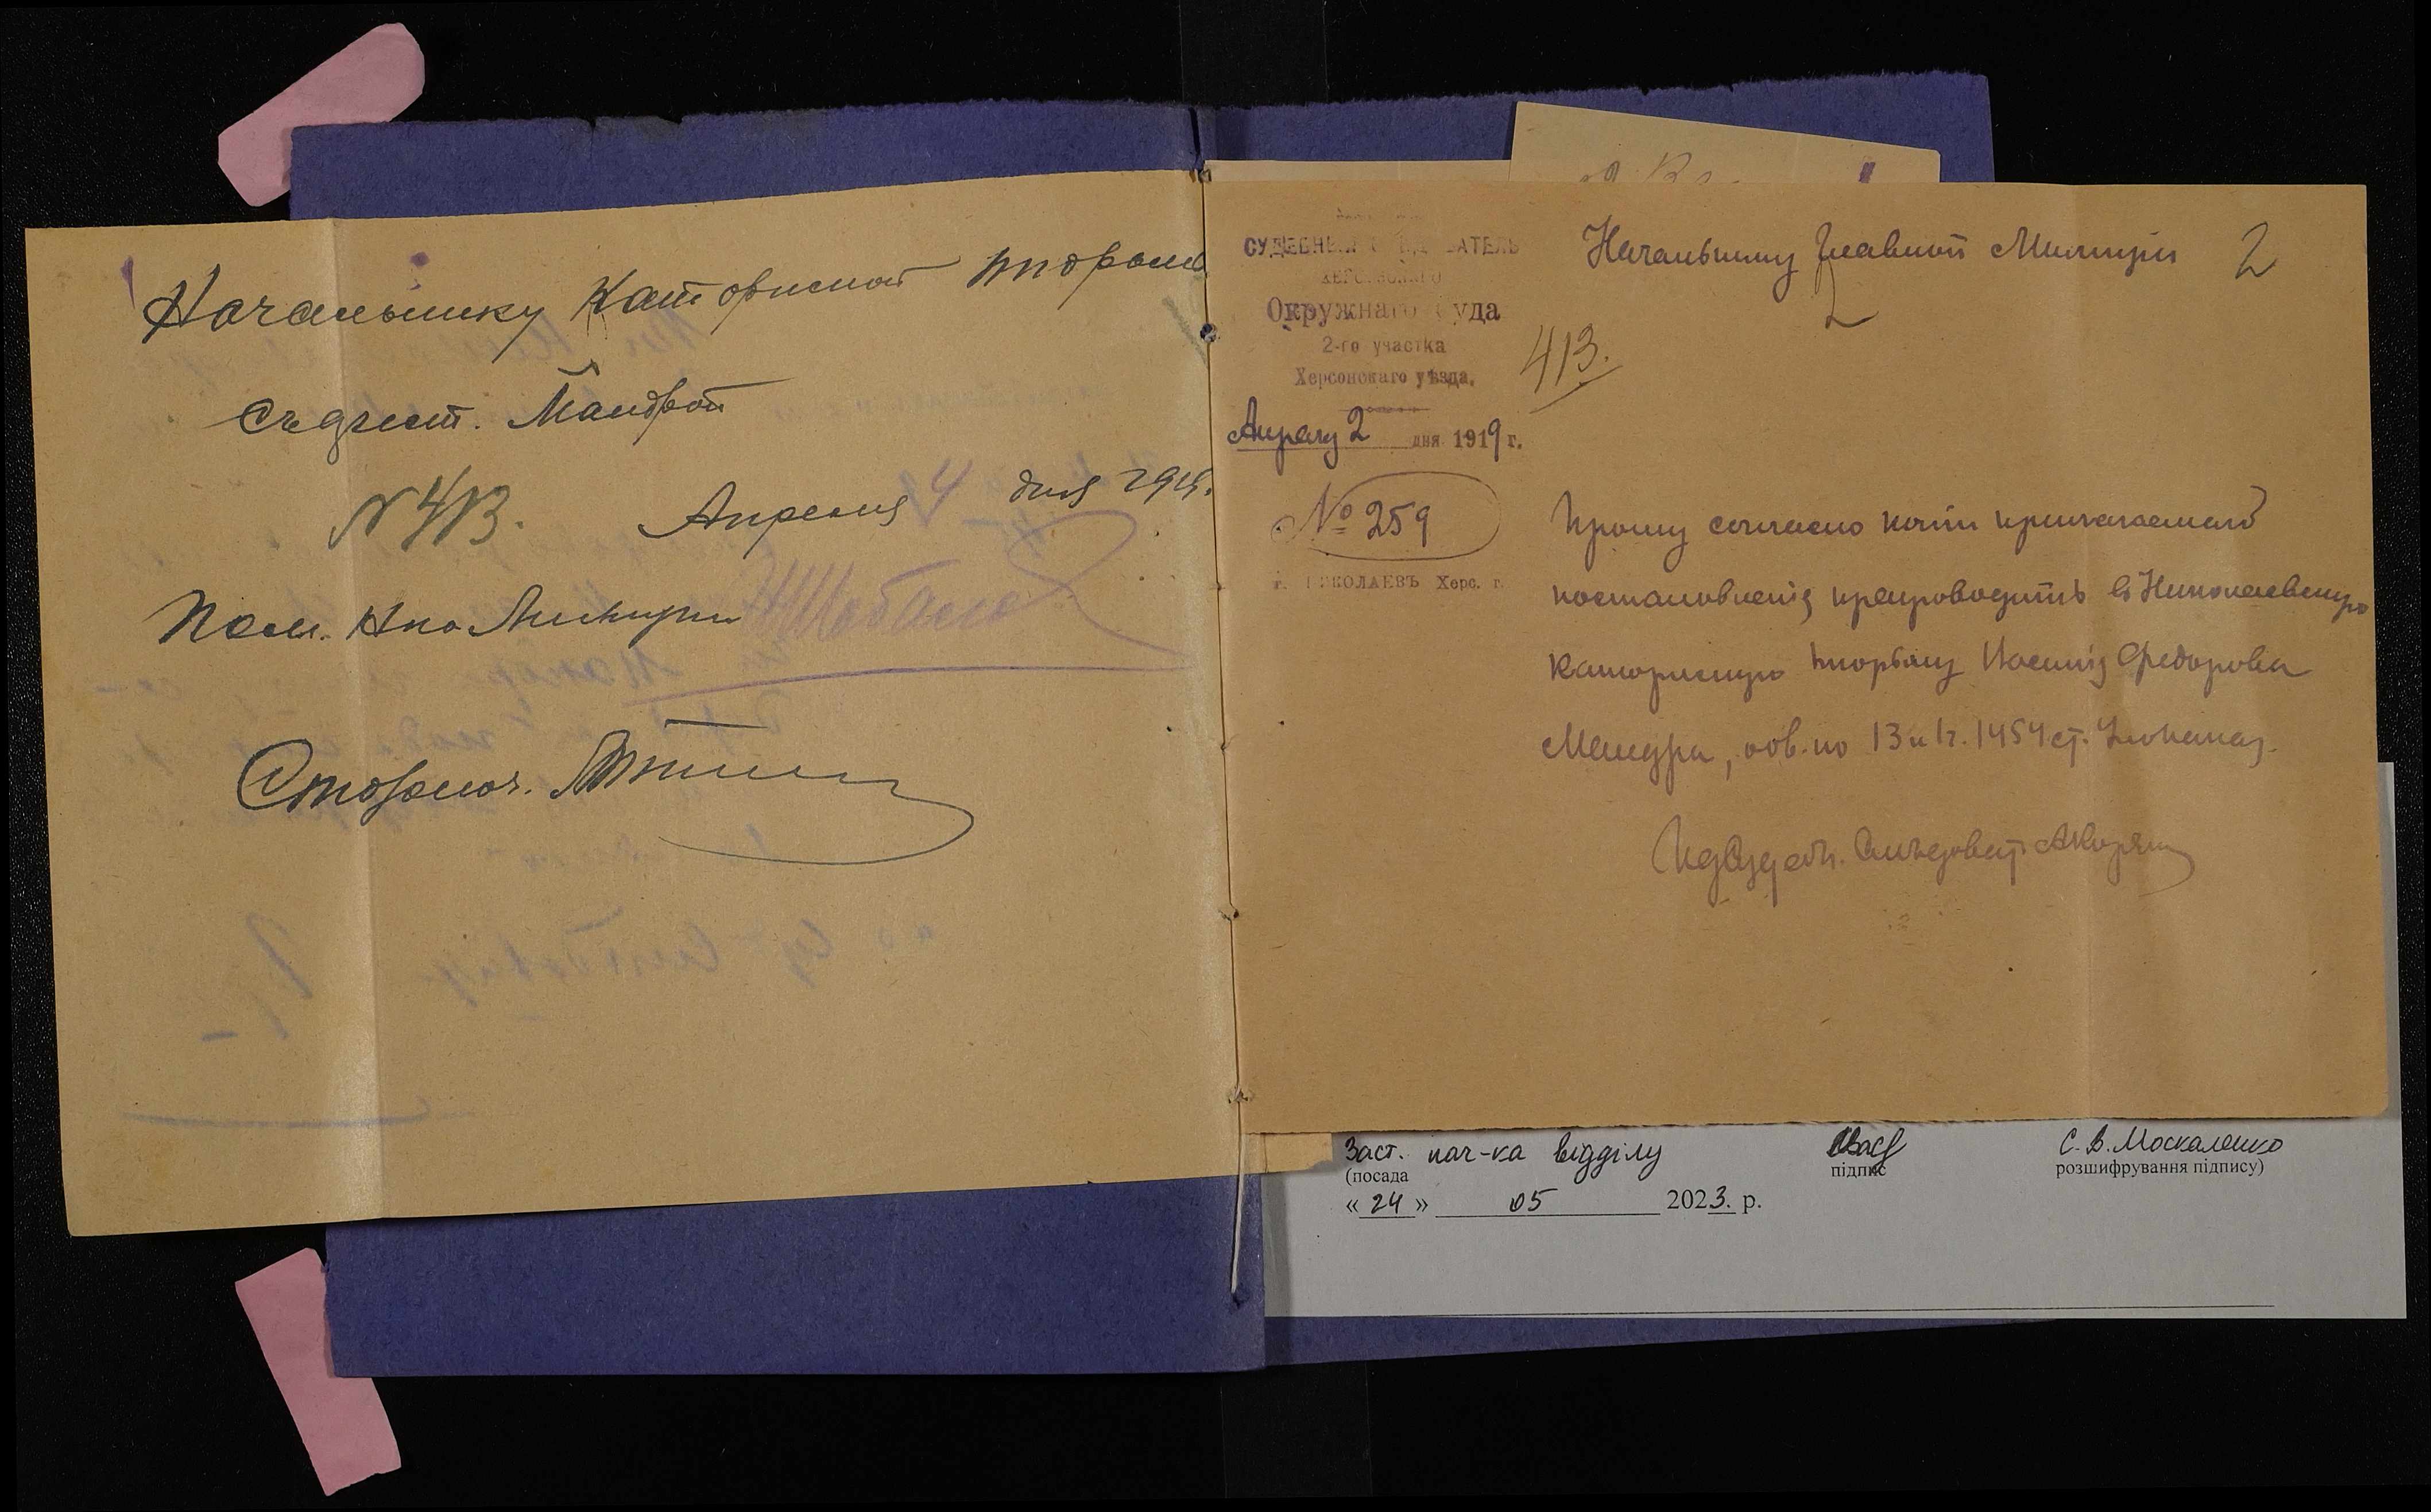 Начальнику Каторжной тюрьмы
съ арест. Мандрой
N 413. Апреля 4 дня 1919.
Пом. Нка Милиции
Столонач.
СУДЕБНЫЙ СЛѢДОВАТЕЛЬ
ХЕРСОНСКАГО
Окружнаго Суда
2-го участка
Херсонскаго уѣзда.
Апреля 2 дня 1919 г.
№ 259
г. НИКОЛАЕВЪ Херс. г.
Начальнику Главной Милиции
2
2
413.
Прошу согласно копіи прилагаемаго
постановленія препроводить в Николаевскую
каторжную тюрьму Федорова
Мандра, обв. по 13 и 1 ч. 1454 ст. Улож. наказ.
Судебн. Слѣдоват.
Заст. нач-ка відділу
(посада
підпис
С. В. Москаленко
розшифрування підпису)
« 24 » 05 2023. р.